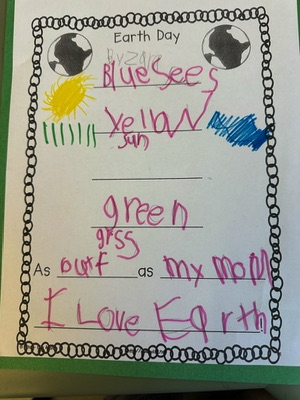 Earth Day
Blue Sees
Yellow
sun
green
grss
As as my mom
I Love Earth